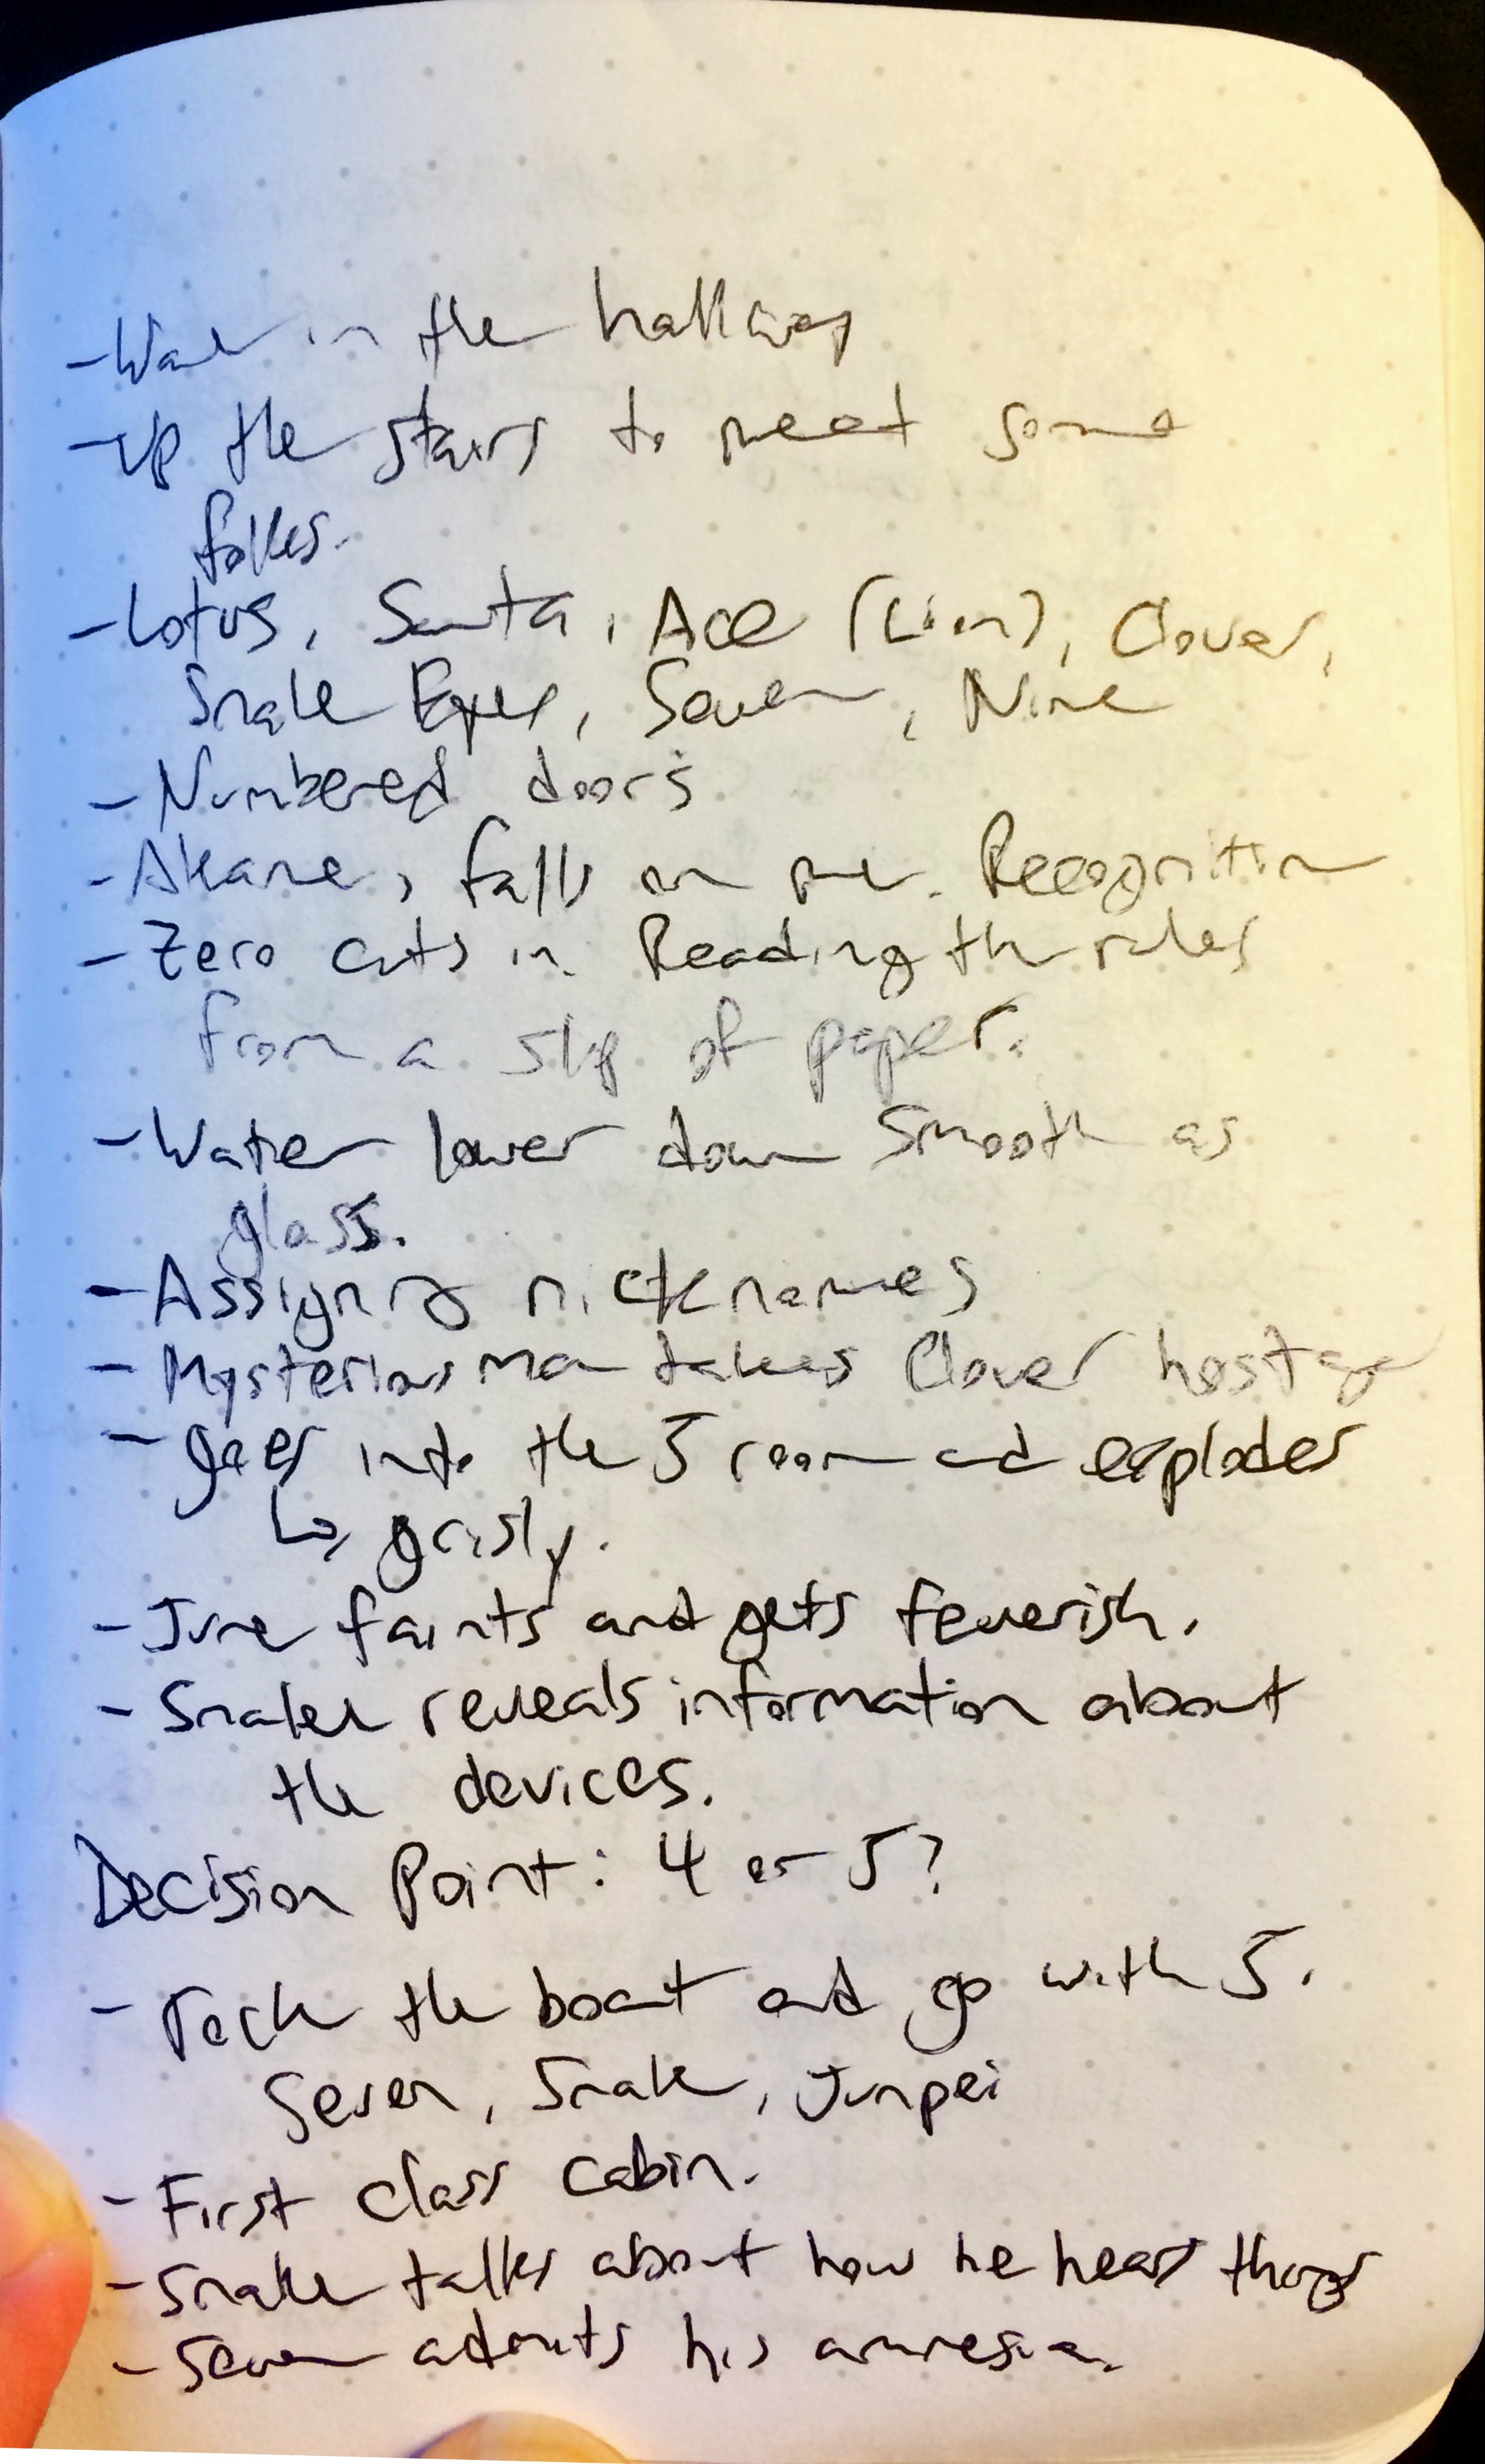 - Water in the hallway
- Up the stairs to meet some
folks.
- Lotus, Santa, Ace (Lion), Clover,
Snake Eyes, Seven, Nine
- Numbered doors
- Akane, falls on me. Recognition
- Zero cuts in Reading the rules
from a slip of paper.
- Water lower down smooth as
glass.
- Assigning nicknames
- Mysterious man takes Clover hostage
- goes into the 5 room and explodes
↳ grisly.
- June faints and gets feverish.
- Snake reveals information about
the devices.
Decision Point: 4 or 5?
- the boat and go with 5.
Seven, Snake, Junpei
- First class cabin.
- Snake talks about how he hears things
- Seven admits his amnesia.